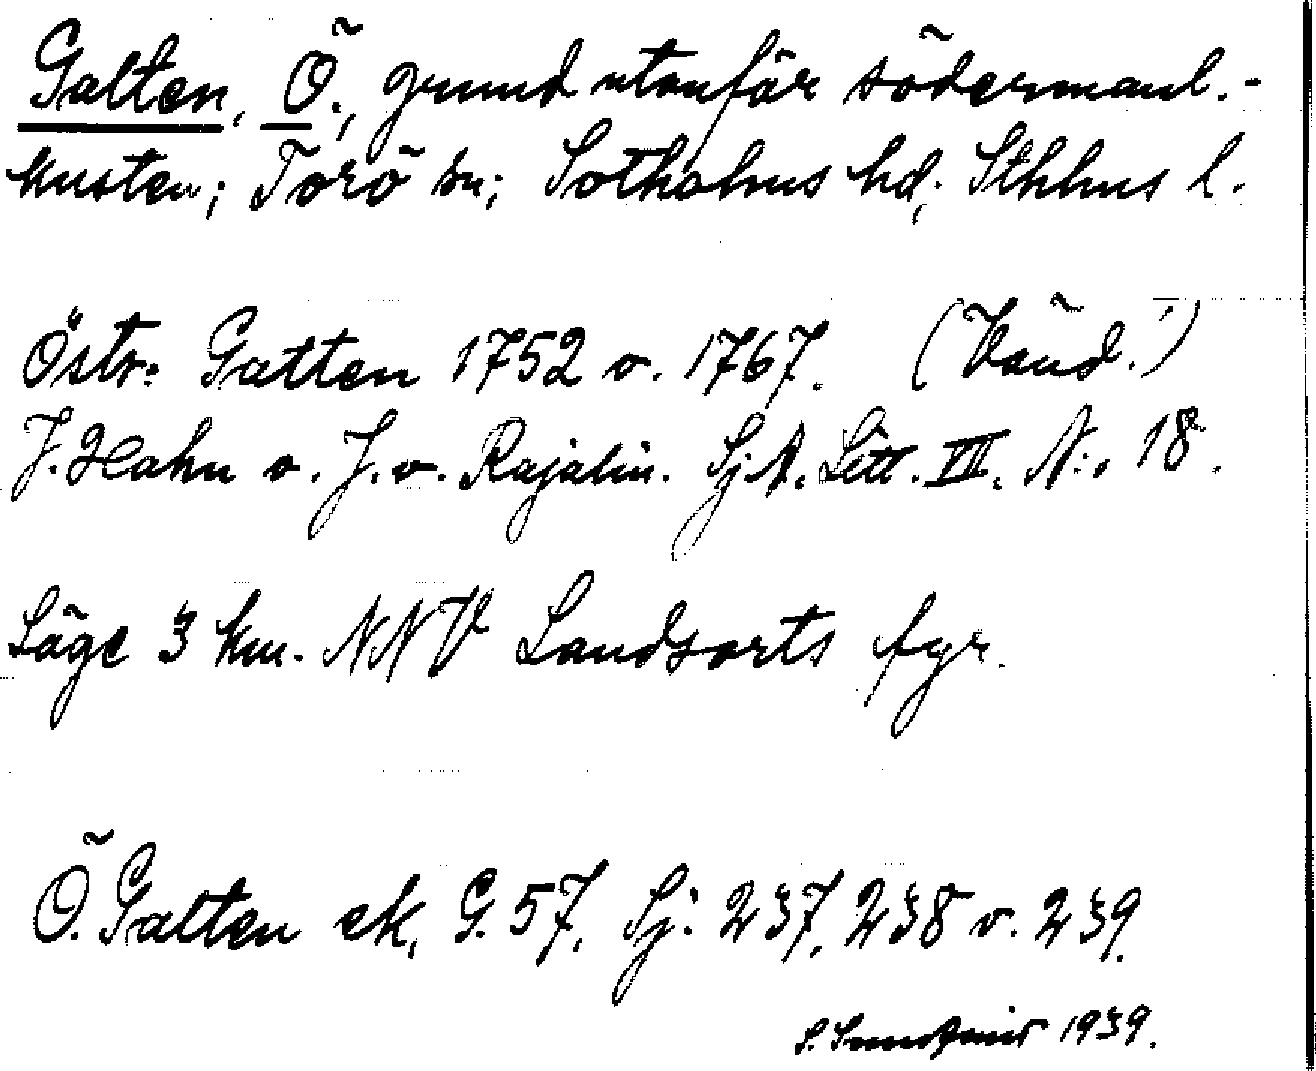 Galten, Ö., grund utanför södermanl.-
kusten; Torö sn; Sotholms hd; Sthlms l.
Östr: Gatten 1752 o. 1767. (Vänd.!)
J. Hahn o. J. v. Rajalin. Sj.A. Litt. VII. N:o 18.
Läge 3 km. NNV Landsorts fyr.
Ö. Galten ek, G. 57, Sj: 237, 238 o. 239.
S. 1939.